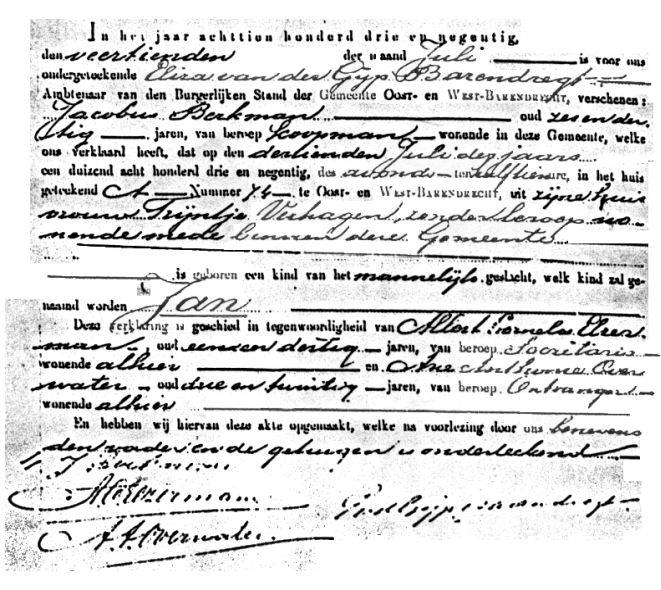 In het jaar achttien honderd drie en negentig,
den veertienden der maand Juli is voor ons
ondergeteekende van der Gijp Barendregt
Ambtenaar van den Burgerlijken Stand der Gemeente Oost- en West-Barendrecht, verschenen:
Jacobus Berkman oud zes en der
tig jaren, van beroep Koopman wonende in deze Gemeente, welke
ons verklaard heeft, dat op den dertienden Juli dezes jaars
een duizend acht honderd drie en negentig, des avonds ten elf ure, in het huis
geteekend A Nummer 74 te Oost- en West-Barendrecht, uit zijne huis
vrouw Trijntje Verhagen, zonder beroep wo
nende mede binnen deze Gemeente
is geboren een kind van het mannelijk geslacht, welk kind zal ge-
naamd worden Jan
Deze verklaring is geschied in tegenwoordigheid van Albert Cornelis
man oud een en dertig jaren, van beroep Secretaris
wonende alhier en Arie Over
water oud drie en twintig jaren, van beroep Ontvanger
wonende alhier
En hebben wij hiervan deze akte opgemaakt, welke na voorlezing door ons benevens
den vader en de getuigen is onderteekend
A Overwater